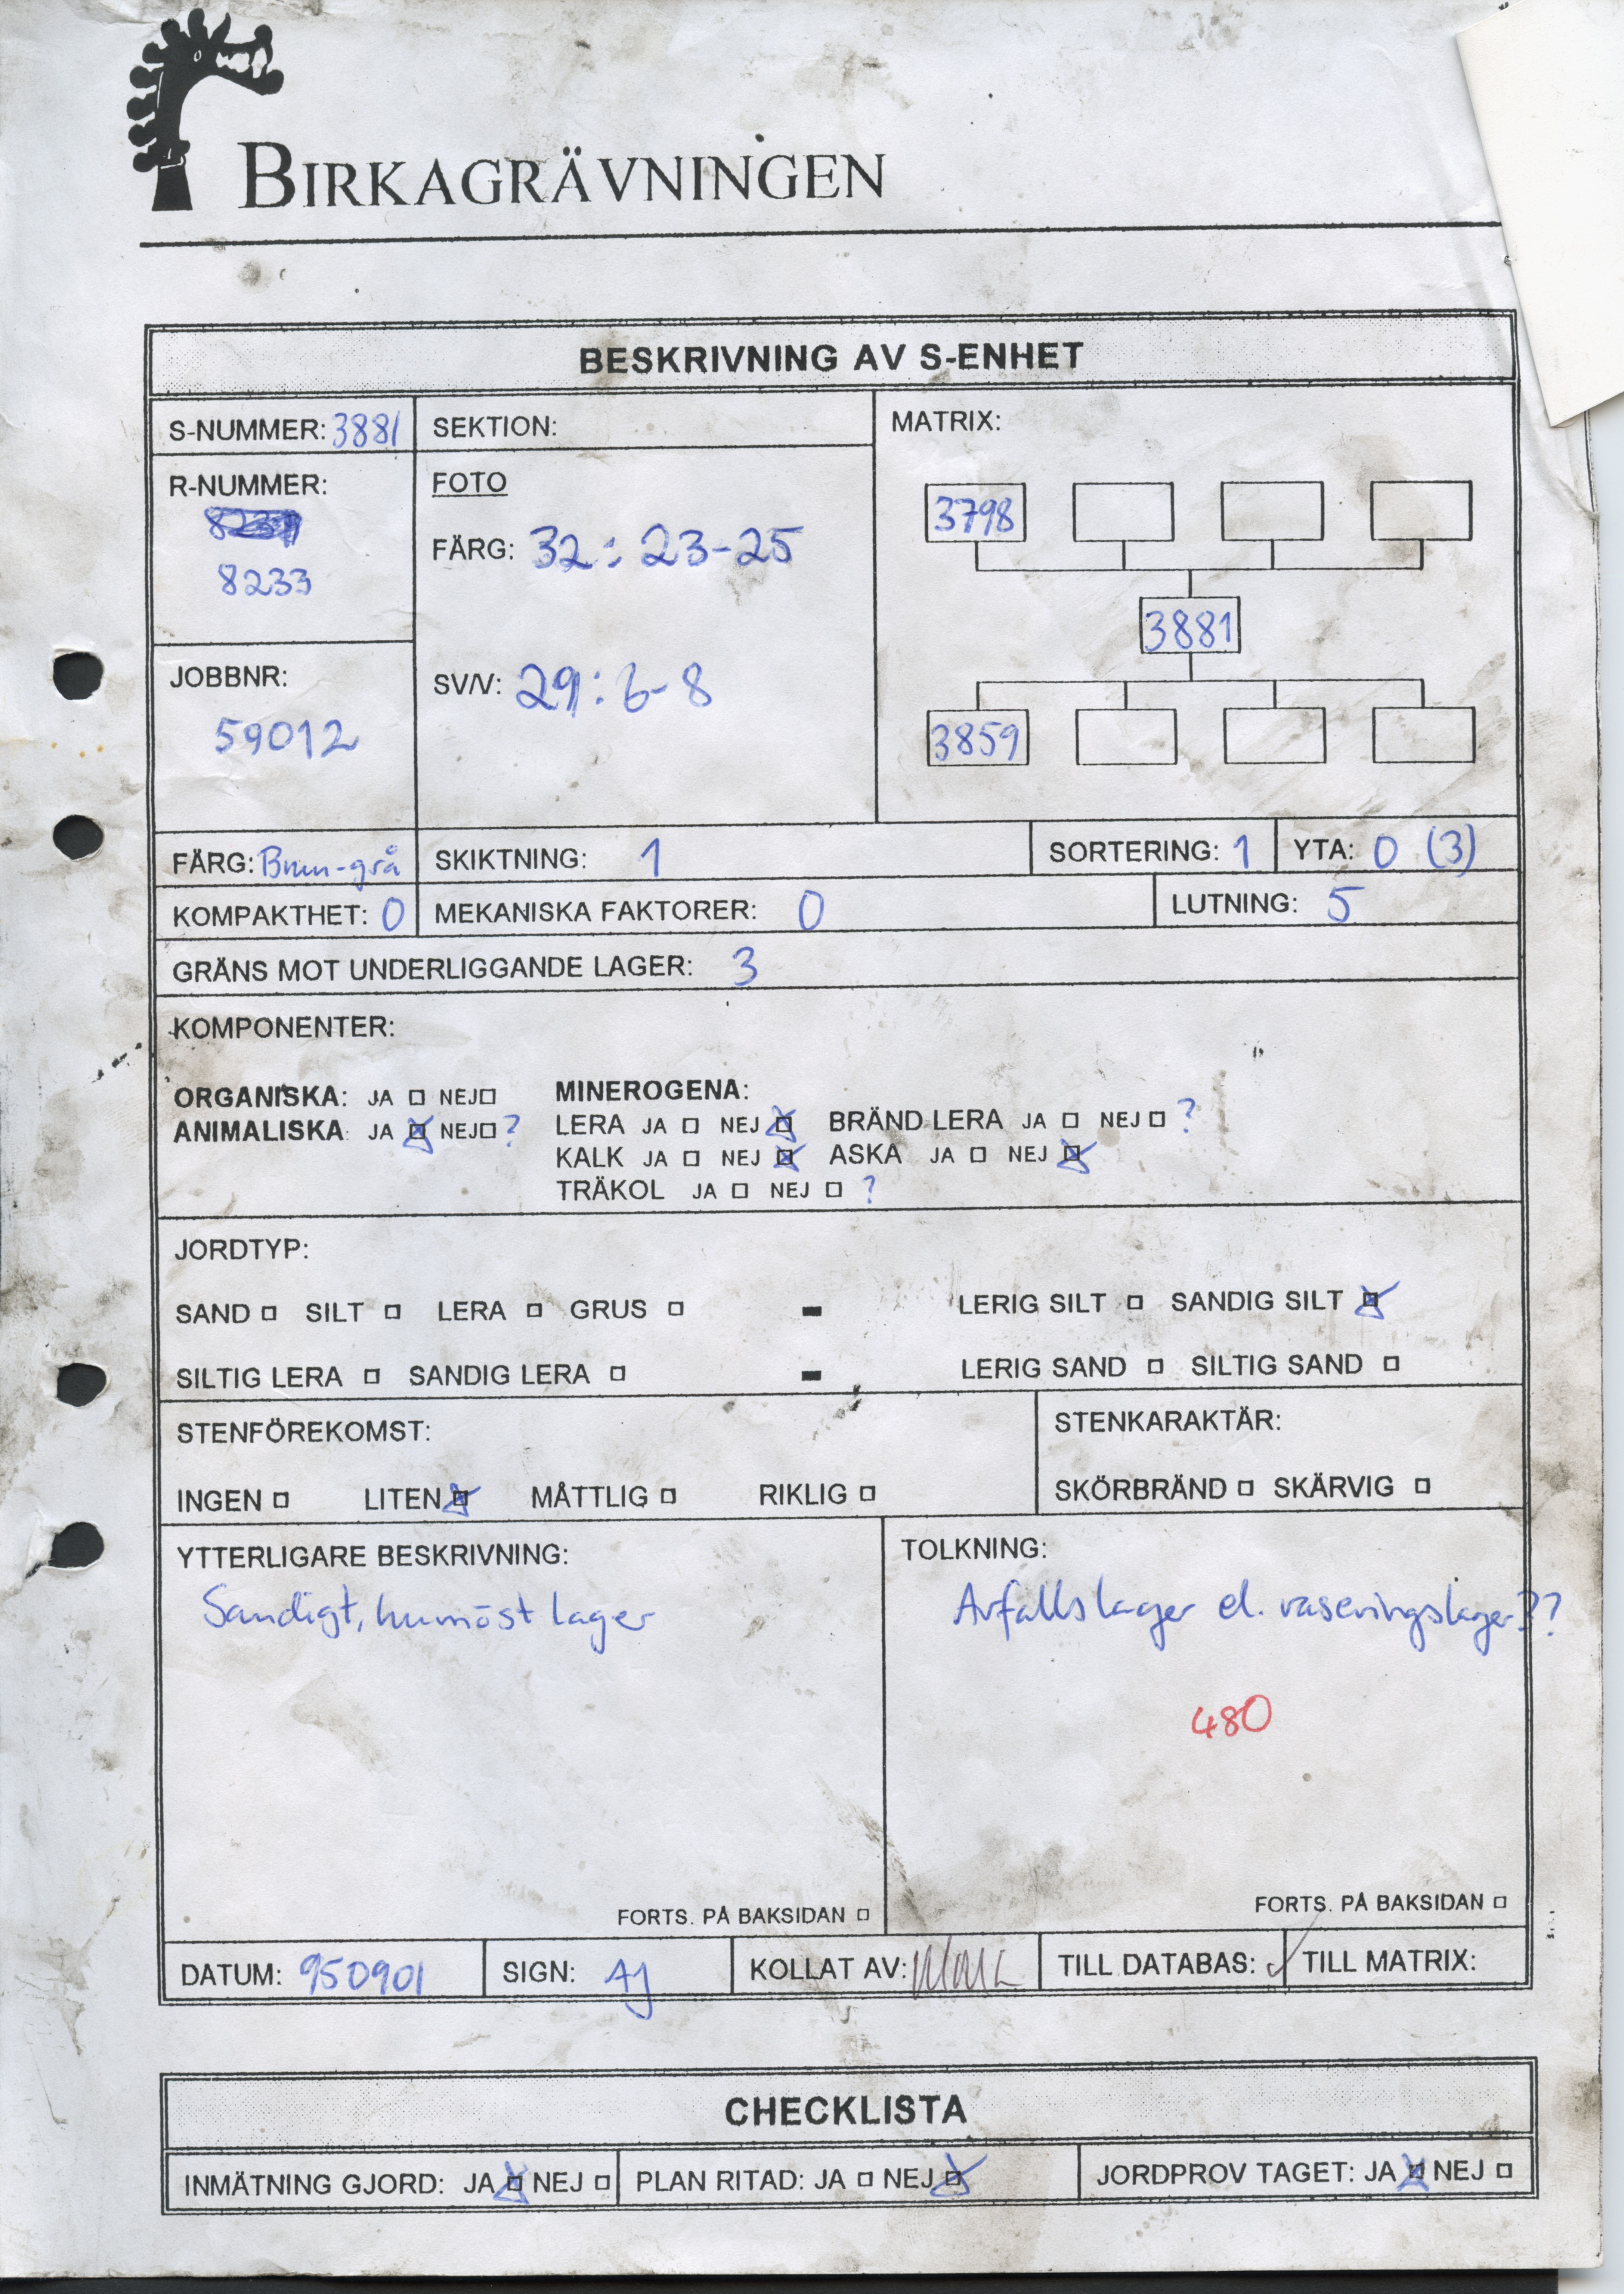 BIRKAGRÄVNINGEN
BESKRIVNING AV S-ENHET
S-NUMMER: 3881
SEKTION:
MATRIX:
R-NUMMER:
8233
FOTO
FÄRG: 32: 23-25
SV/V: 29: 6-8
3798
3881
3859
JOBBNR:
59012
FÄRG: Brun-grå
SKIKTNING: 1
SORTERING: 1
YTA: 0 (3)
KOMPAKTHET: 0
MEKANISKA FAKTORER: 0
LUTNING: 5
GRÄNS MOT UNDERLIGGANDE LAGER: 3
KOMPONENTER:
ORGANISKA: JA NEJ
MINEROGENA:
ANIMALISKA: JA NEJ ?
LERA JA NEJ BRÄND LERA JA NEJ ?
KALK JA NEJ ASKA JA NEJ
TRÄKOL JA NEJ ?
JORDTYP:
SAND SILT LERA GRUS - LERIG SILT SANDIG SILT
SILTIG LERA SANDIG LERA - LERIG SAND SILTIG SAND
STENFÖREKOMST:
INGEN LITEN MÅTTLIG RIKLIG
STENKARAKTÄR:
SKÖRBRÄND SKÄRVIG
YTTERLIGARE BESKRIVNING:
Sandigt, humöst lager
FORTS. PÅ BAKSIDAN
TOLKNING:
Avfallslager el. raseringslager??
480
FORTS. PÅ BAKSIDAN
DATUM: 950901
SIGN: AJ
KOLLAT AV:
TILL DATABAS: ✓
TILL MATRIX:
CHECKLISTA
INMÄTNING GJORD: JA NEJ
PLAN RITAD: JA NEJ
JORDPROV TAGET: JA NEJ